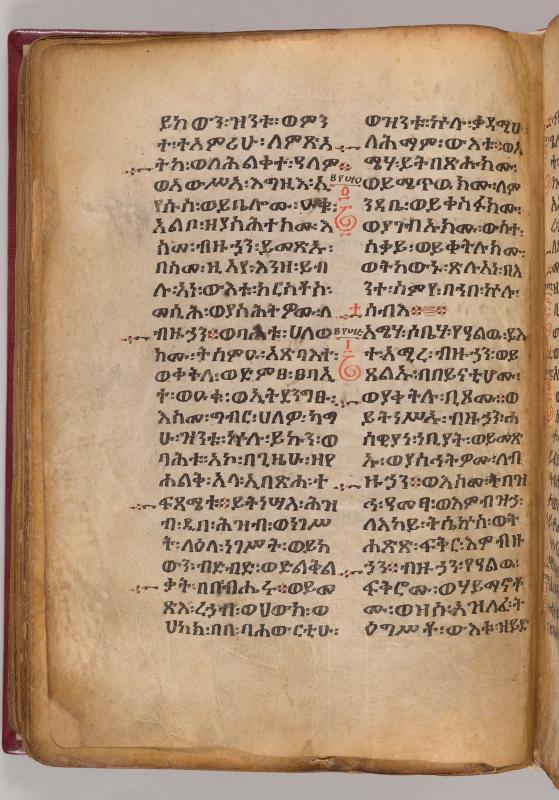 ይከውን፡ዝንቱ፡ወምን
ት፡ተአምሪሁ፡ለምጽአ
ትከ፡ወለሕልቀተ፡ዓለም።
ወአውሥአ፡እግዚእ፡ኢ
የሱስ፡ወይቤሎሙ፡ዑቁ፡
አልቦ፡ዘያስሕተክሙ፡እ
ስመ፡ብዙኃን፡ይመጽኡ፡
በስመ፡ዚአየ፡እንዘ፡ይብ
ሉ፡አነ፡ውእቱ፡ክርስቶስ፡
መሲሕ፡ወያስሕትዎሙ፡ለ
ብዙኃን።ወባሕቱ፡ሀለወ
ክሙ፡ትስምዑ፡አጽባእተ፡
ወቀትለ፡ወድምፀ፡ፀባኢ
ት፡ወዑቁ፡ወኢትደንግፁ፡
እስመ፡ግብር፡ሀለዎ፡ካማ
ሁ፡ዝንቱ፡ኵሉ፡ይኩን፡ወ
ባሕቱ፡አኮ፡በጊዜሁ፡ዘየ
ሐልቅ፡አላ፡ኢበጽሐ፡ት
ፍጻሜቱ።ይትነሣእ፡ሕዝ
ብ፡ዲበ፡ሕዝብ፡ወነገሥ
ት፡ላዕለ፡ነገሥት፡ወይከ
ውን፡ብድብድ፡ወድልቅል
ቃት፡በበብሔሩ።ወይመ
ጽእ፡ረኃብ፡ወሀውክ፡ወ
ሀከክ፡በበ፡ባሕውርቲሁ፡
ወዝንቱ፡ኵሉ፡ቃዳሚሁ
ለሕማም፡ውእቱ።ወአ
ሜሃ፡ይትበጽሑክሙ፡
ወይሜጥዉክሙ፡ለም
ንዳቤ፡ወይቀስፉክሙ፡
ወያገብኡክሙ፡ውስተ፡
ስቃይ፡ወይቀትሉክሙ፡
ወትከውኑ፡ጽሉአነ፡በእ
ንተ፡ስምየ፡በኀበ፡ኵሉ፡
ሰብእ።
አሜሃ፡ሶቤሃ፡የሃልዉ፡ይእ
ተ፡አሚረ፡ብዙኃን፡ወይ
ጸልኡ፡በበይናቲሆሙ፡
ወያቀትሉ፡ቢጾሙ።ወ
ይትነሥኡ፡ብዙኃን፡ሐ
ሳዊያን፡ነቢያት፡ወይመጽ
ኡ፡ወያስሕትዎሙ፡ለብ
ዙኃን።ወእስመ፡ትበዝ
ኅ፡ዓመፃ፡ወእምብዝኃ፡
ለእከይ፡ትሴኰስ፡ወት
ሐጽጽ፡ፍቅር፡እምብዙ
ኃን።ብዙኃን፡የሃልዉ፡
ፍቅሮሙ፡ወሃይማኖቶ
ሙ፡ወዘሰ፡አዝለፈ፡ት
ዕግሥቶ፡ውእቱ፡ዘይድ